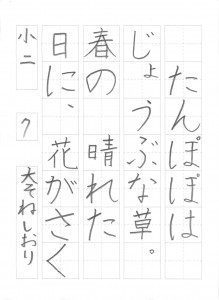 たんぽぽは
じょうぶな草。
春の 晴れた
日に、花がさく
小二 ク 大そねしおり